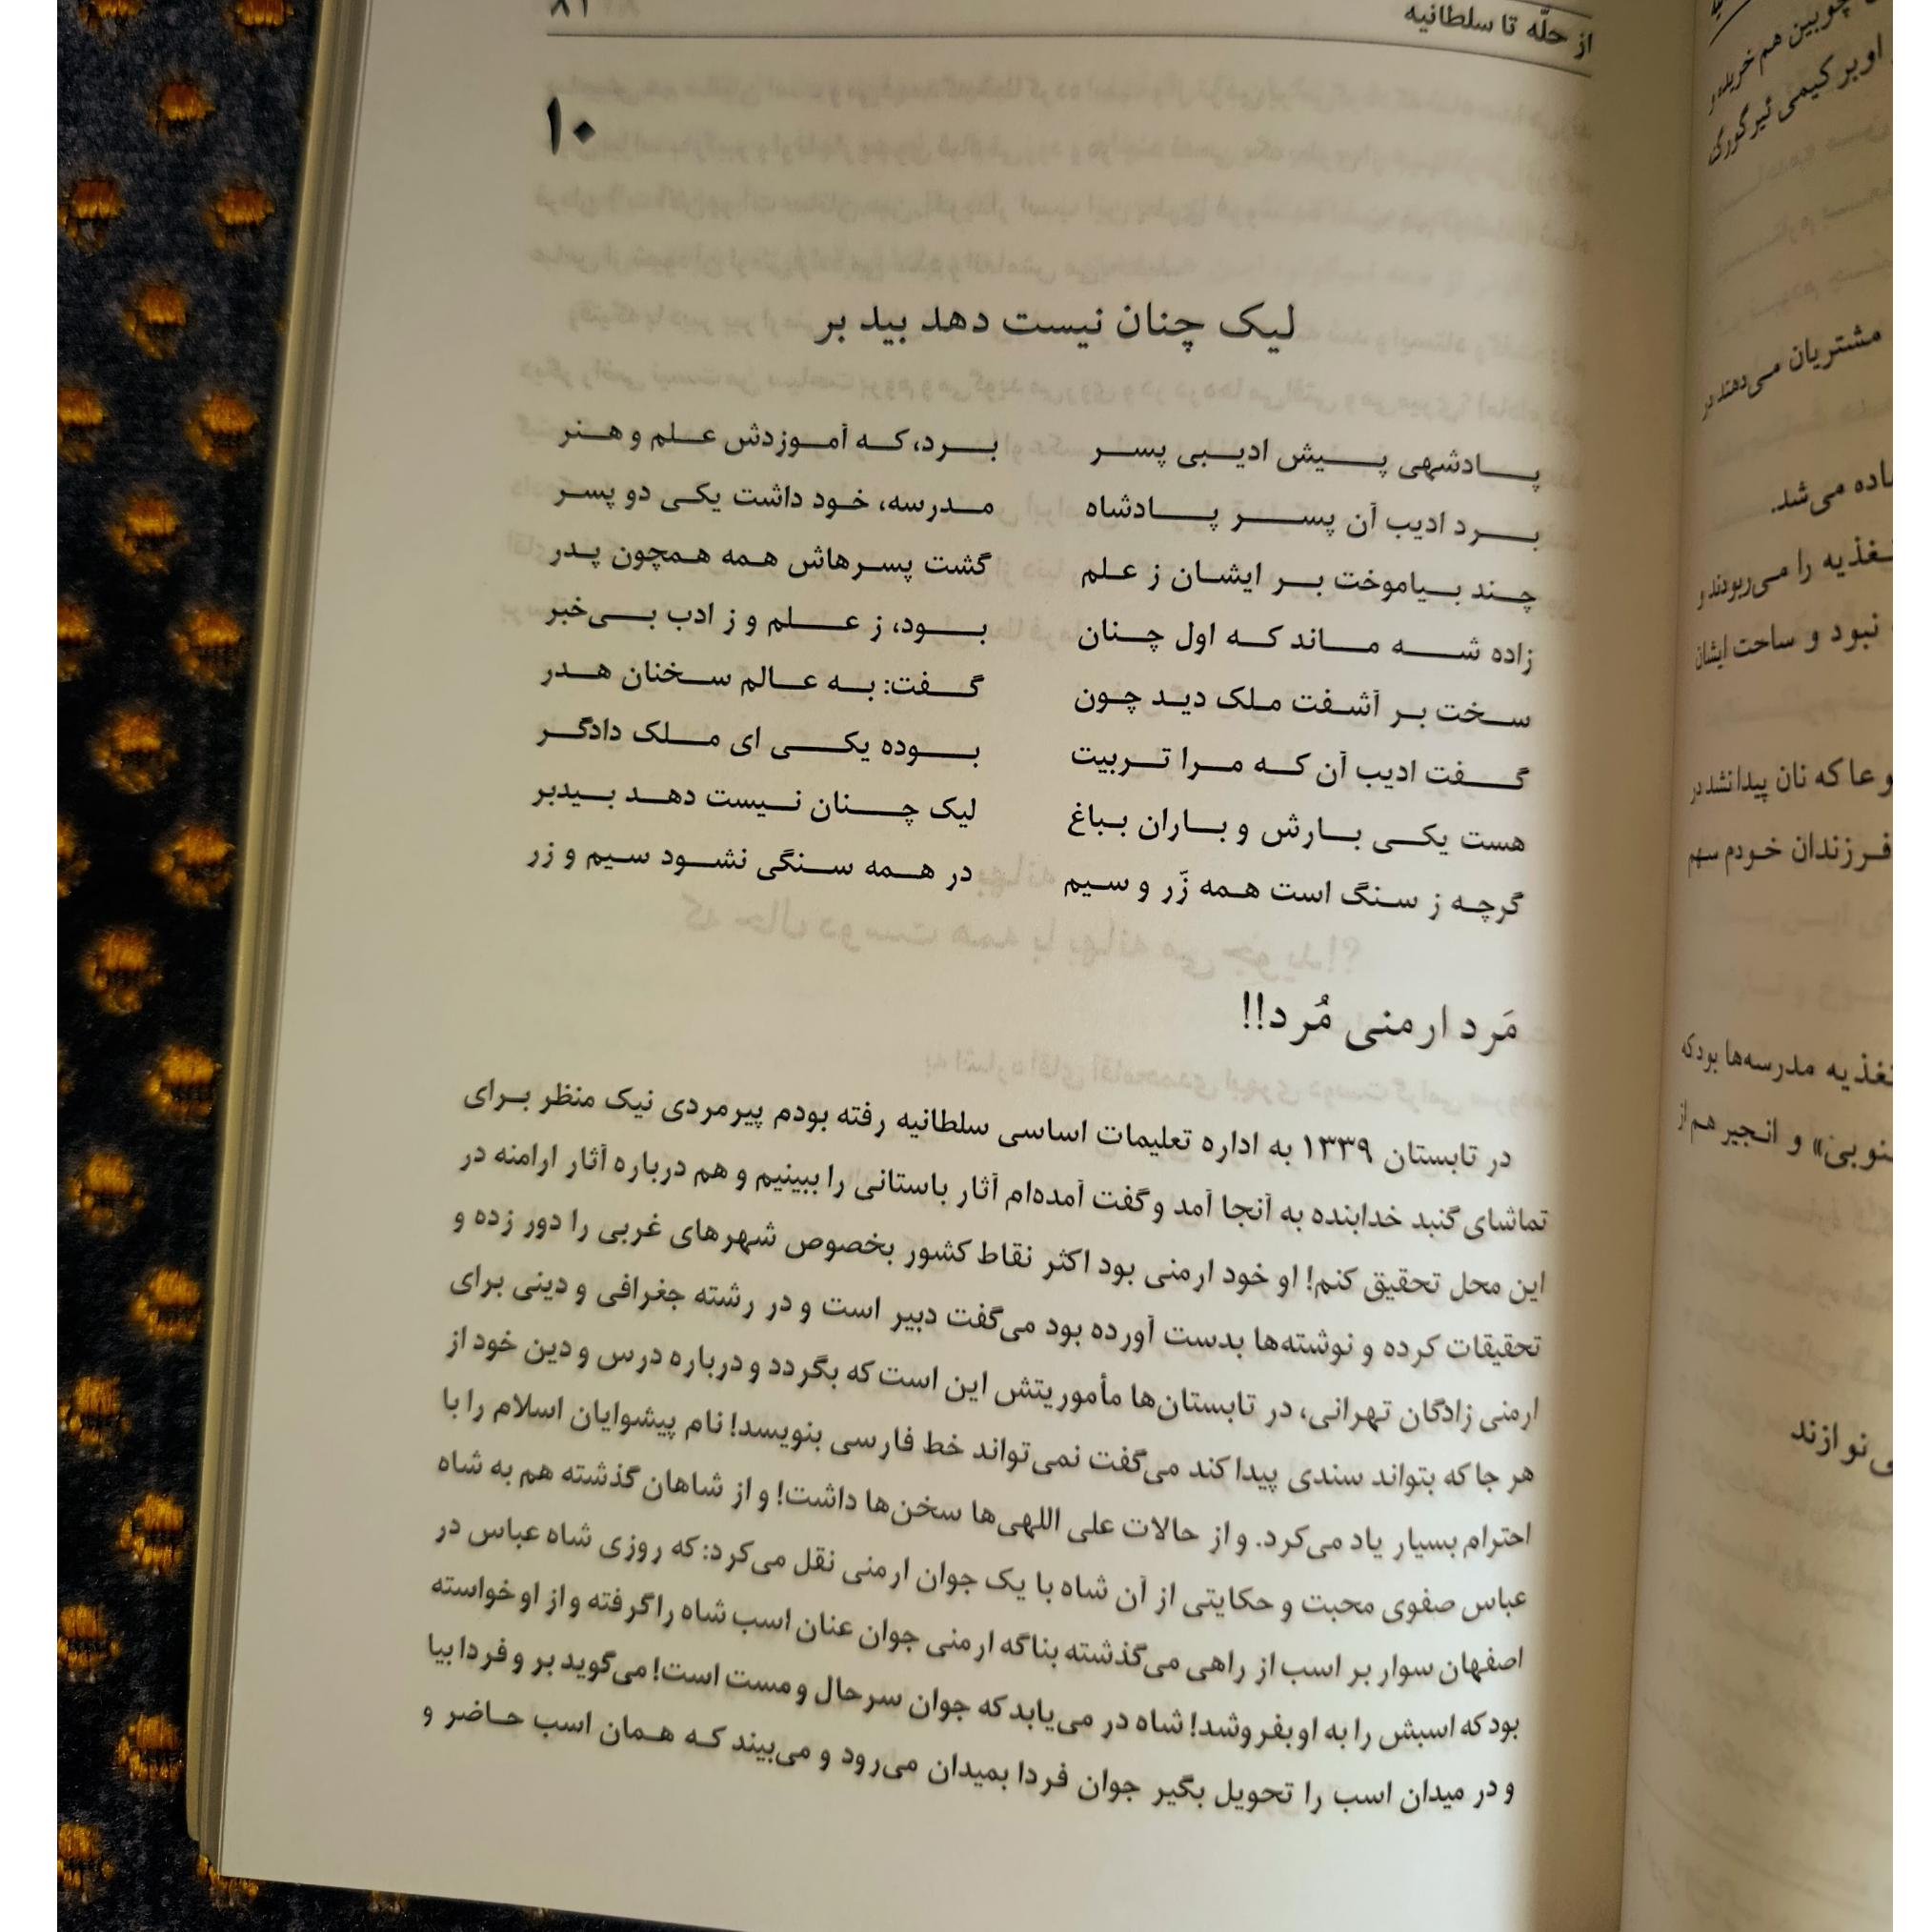 از حلّه تا سلطانیه
۱۰
لیک چنان نیست دهد بید بر
پادشهی پیش ادیبی پسر برد، که آموزدش علم و هنر
برد ادیب آن پسر پادشاه مدرسه، خود داشت یکی دو پسر
چند بیاموخت بر ایشان ز علم گشت پسرهاش همه همچون پدر
زاده شه ماند که اول چنان بود، ز علم و ز ادب بی‌خبر
سخت بر آشفت ملک دید چون گفت: به عالم سخنان هدر
گفت ادیب آن که مرا تربیت بوده یکی ای ملک دادگر
هست یکی بارش و باران بباغ لیک چنان نیست دهد بیدبر
گرچه ز سنگ است همه زَر و سیم در همه سنگی نشود سیم و زر
مَرد ارمنی مُرد!!
در تابستان ۱۳۳۹ به اداره تعلیمات اساسی سلطانیه رفته بودم پیرمردی نیک منظر برای
تماشای گنبد خدابنده به آنجا آمد و گفت آمده‌ام آثار باستانی را ببینیم و هم درباره آثار ارامنه در
این محل تحقیق کنم! او خود ارمنی بود اکثر نقاط کشور بخصوص شهرهای غربی را دور زده و
تحقیقات کرده و نوشته‌ها بدست آورده بود می‌گفت دبیر است و در رشته جغرافی و دینی برای
ارمنی زادگان تهرانی، در تابستان‌ها مأموریتش این است که بگردد و درباره درس و دین خود از
هر جا که بتواند سندی پیدا کند می‌گفت نمی‌تواند خط فارسی بنویسد! نام پیشوایان اسلام را با
احترام بسیار یاد می‌کرد. و از حالات علی اللهی‌ها سخن‌ها داشت! و از شاهان گذشته هم به شاه
عباس صفوی محبت و حکایتی از آن شاه با یک جوان ارمنی نقل می‌کرد: که روزی شاه عباس در
اصفهان سوار بر اسب از راهی می‌گذشته بناگه ارمنی جوان عنان اسب شاه را گرفته و از او خواسته
بود که اسبش را به او بفروشد! شاه در می‌یابد که جوان سرحال و مست است! می‌گوید بر و فردا بیا
و در میدان اسب را تحویل بگیر جوان فردا بمیدان می‌رود و می‌بیند که همان اسب حاضر و
چوبین هم خریدار
او بر کیمی ئیر گورگ
مشتریان می‌دهند در
می‌شد.
تغذیه را می‌ربودند و
نبود و ساحت ایشان
و عا که نان پیدا نشد در
فرزندان خودم سهم
تغذیه مدرسه‌ها بود که
و انجیر هم از
نوازند